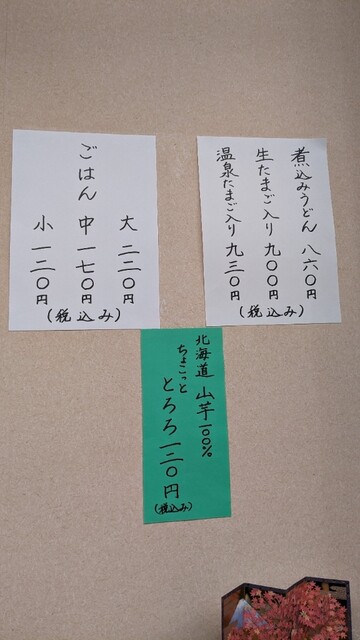 煮込みうどん 八六〇円
生たまご入り 九〇〇円
温泉たまご入り 九三〇円
(税込み)
ごはん
大 二二〇円
中 一七〇円
小 一二〇円
(税込み)
北海道 山芋100%
ちょこっと
とろろ 一二〇円
(税込み)